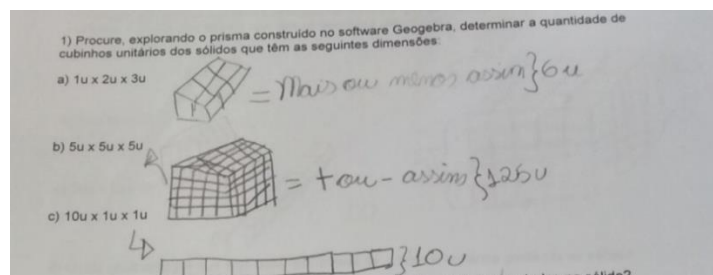 1) Procure, explorando o prisma construído no software Geogebra, determinar a quantidade de
cubinhos unitários dos sólidos que têm as seguintes dimensões:
a) 1u x 2u x 3u
= Mais ou menos assim } 6u
b) 5u x 5u x 5u
= + ou - assim } 125u
c) 10u x 1u x 1u
} 10u